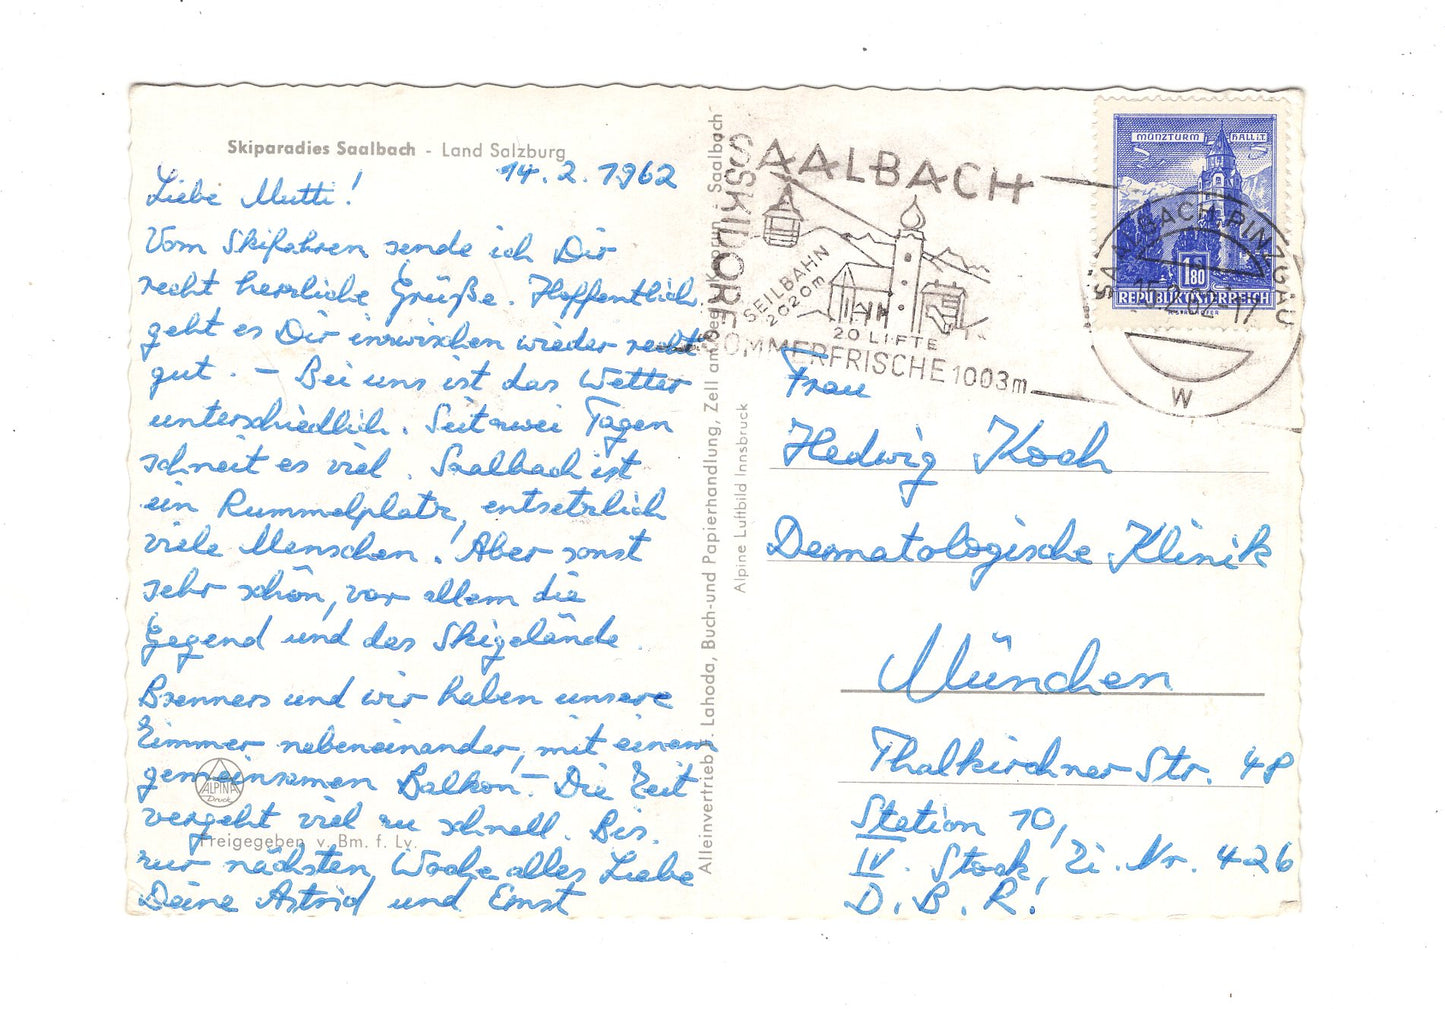 Skiparadies Saalbach - Land Salzburg
14. 2. 1962
Liebe Mutti!
Vom Skifahren sende ich Dir
recht herrliche Grüße. Hoffentlich
geht es Dir inzwischen wieder recht
gut. – Bei uns ist das Wetter
unterschiedlich. Seit zwei Tagen
schneit es viel. Saalbach ist
ein Rummelplatz, entsetzlich
viele Menschen! Aber sonst
sehr schön, vor allem die
Gegend und das Skigelände.
Brenners und wir haben unsere
Zimmer nebeneinander, mit einem
gemeinsamen Balkon. – Die Zeit
vergeht viel zu schnell. Bis
zur nächsten Woche alles Liebe
Deine Astrid und Ernst
ALPINA
Druck
Freigegeben v. Bm. f. Lv.
Alleinvertrieb J. Lahoda, Buch-und Papierhandlung, Zell am See - Kaprun - Saalbach
Alpine Luftbild Innsbruck
SAALBACH
SKIDORF
SEILBAHN
2020m
20 LIFTE
SOMMERFRISCHE 1003m
MÜNZTURM HALL i.T.
S 1.80
REPUBLIK ÖSTERREICH
SAALBACH, PINZGAU
15.2.62-17
W
Frau
Hedwig Koch
Dermatologische Klinik
München
Thalkirchner Str. 48
Station 10,
IV. Stock, Zi. Nr. 426
D. B. R!